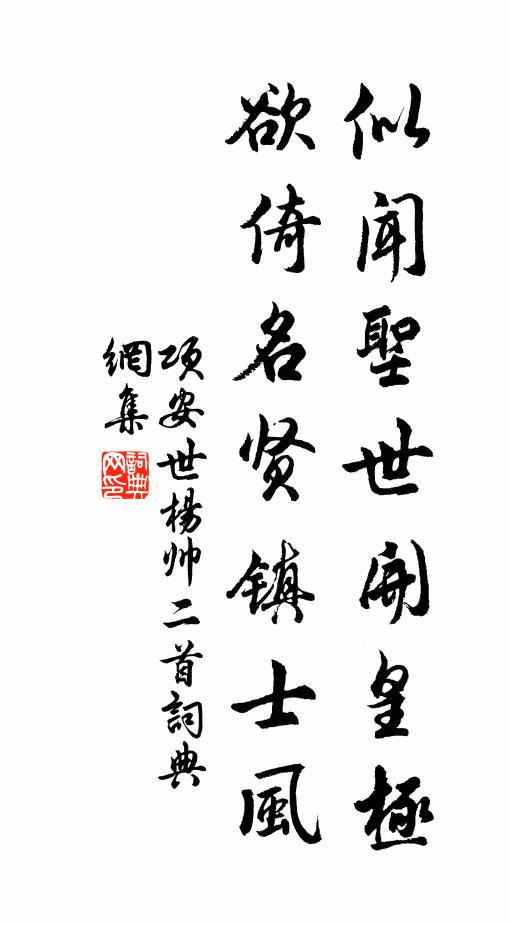 似闻聖世開皇極
欲倚名贤镇士風
项安世楊帅二首詞典
網集
詞典網印